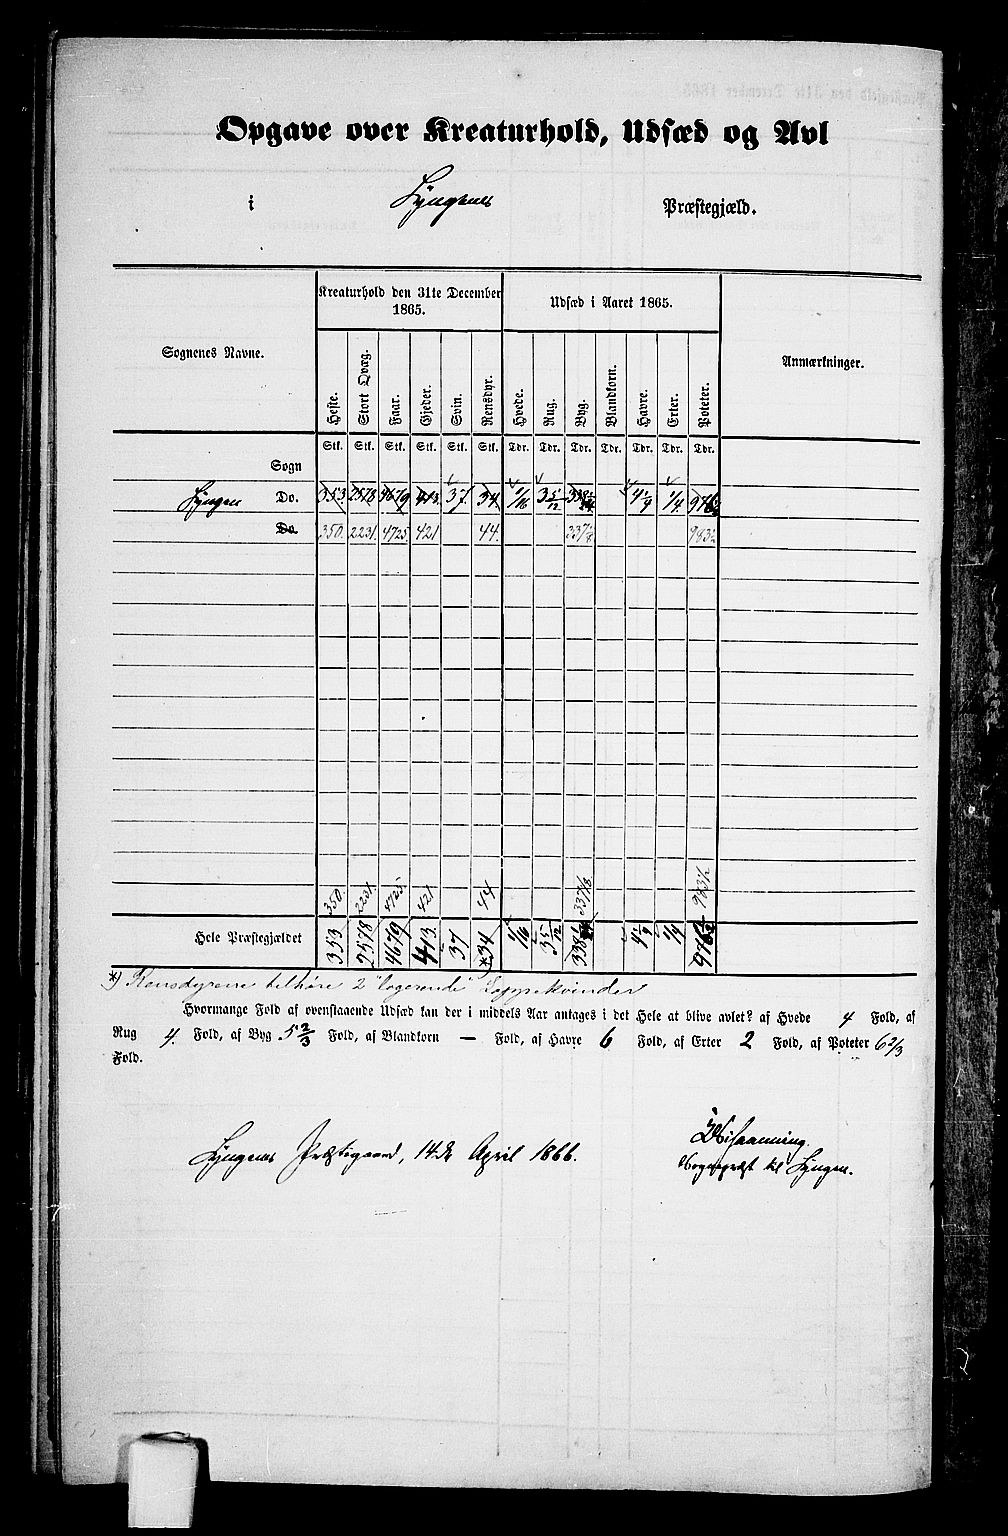 Opgave over Kreaturhold, Udsæd og Avl
i Lyngens Præstegjæld.
Sognenes Navne. Kreaturhold den 31te December 1865. Udsæd i Aaret 1865. Anmærkninger.
Heste. Stort Qvæg. Faar. Gjeder. Svin. Rensdyr. Hvede. Rug. Byg. Blandkorn. Havre. Erter. Poteter.
Stk. Stk. Stk. Stk. Stk. Stk. Tdr. Tdr. Tdr. Tdr. Tdr. Tdr. Tdr.
Sogn
Lyngen Do. 353 2578 4679 413. 37. 34. 1/16 3 5/12 4 1/9 1/4
Do 350. 2231. 4725 421 44. 337 983½
350. 2231 4725 421 44 983½
Hele Præstegjældet 353 2578 4679 413 37 *34 1/16 3 5/12 4 1/9 1/4
*) Rensdyrene tilhøre 2 "logerende" Lappekvinder
Hvormange Fold af ovenstaaende Udsæd kan der i middels Aar antages i det Hele at blive avlet? af Hvede 4 Fold, af
Rug 4. Fold, af Byg 5 2/3 Fold, af Blandkorn — Fold, af Havre 6 Fold, af Erter 2 Fold, af Poteter 6 2/3
Fold.
Lyngens Præstegaard, 14de April 1866.
Sognepræst til Lyngen.